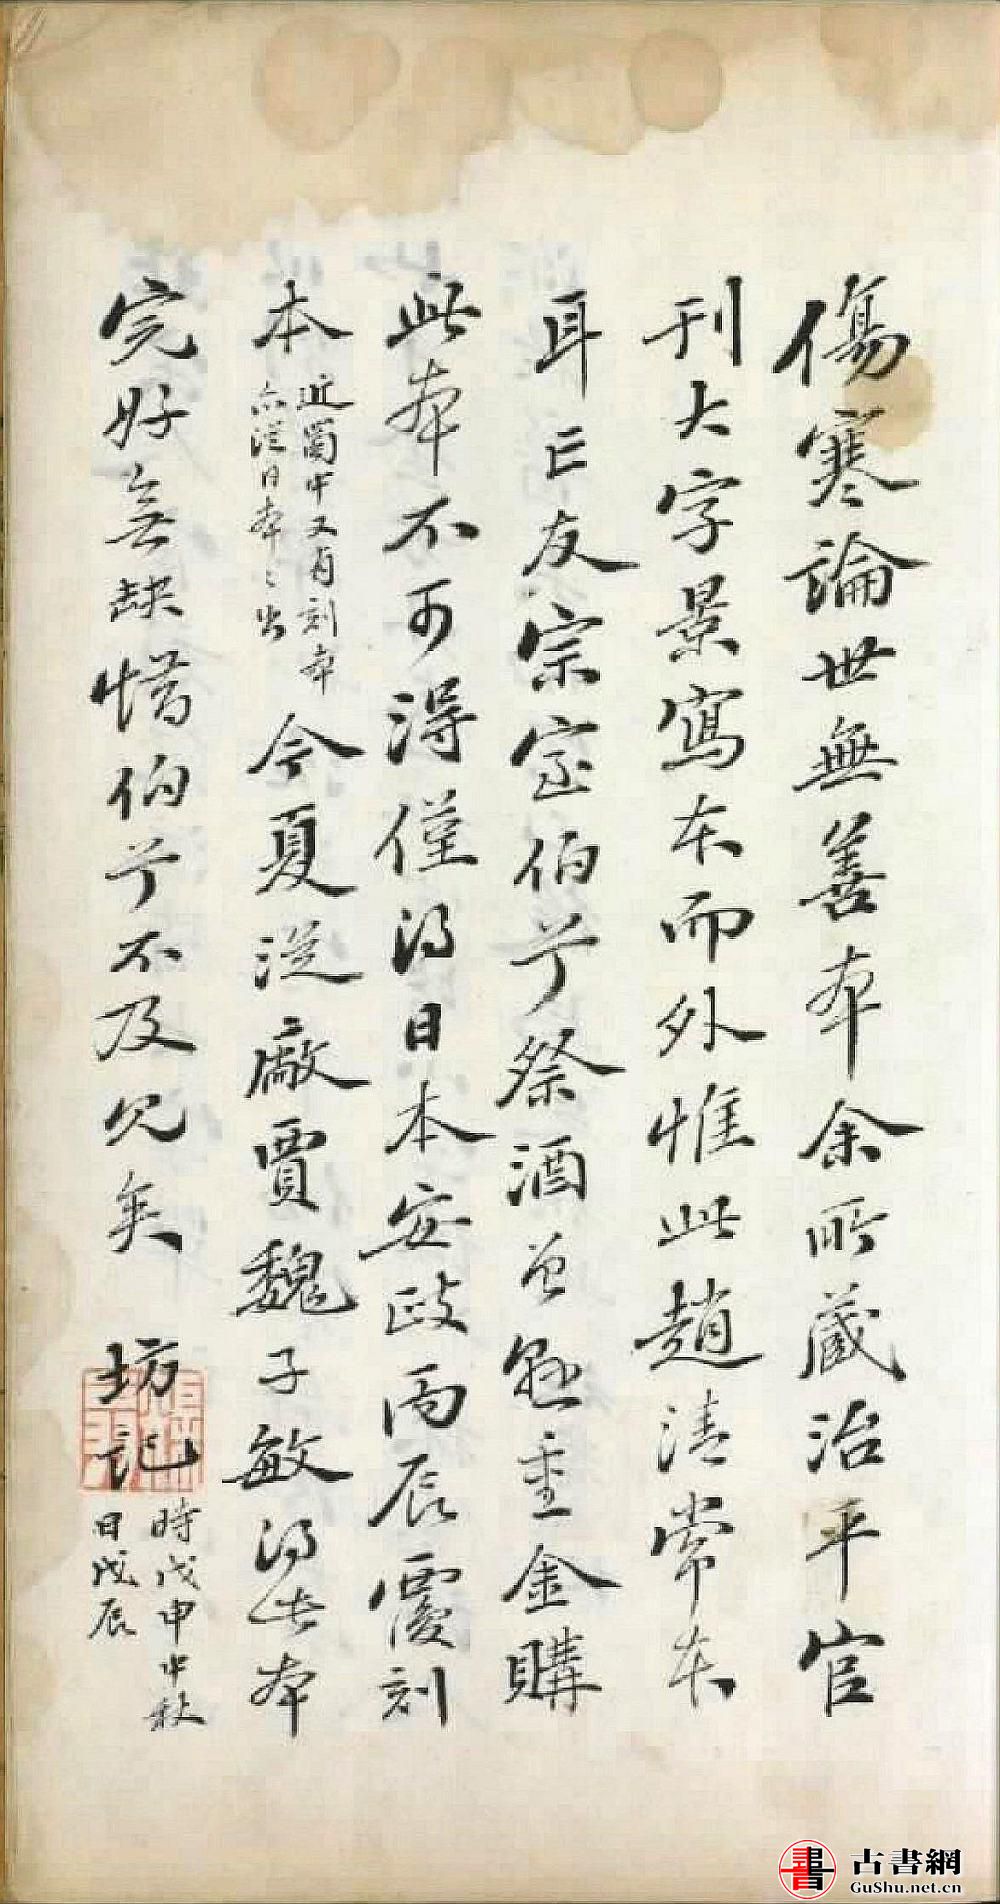 傷寒論世無善本余所藏治平官
刊大字景寫本而外惟此趙清常本
耳亡友宗室伯兮祭酒曾懸重金購
此本不可得僅得日本安政丙辰覆刻
本近蜀中又有刻本
亦從日本本出
今夏從廠賈魏子敏得此本
完好無缺惜伯兮不及見矣
坊記
時戊申中秋
日戊辰
古書網
GuShu.net.cn